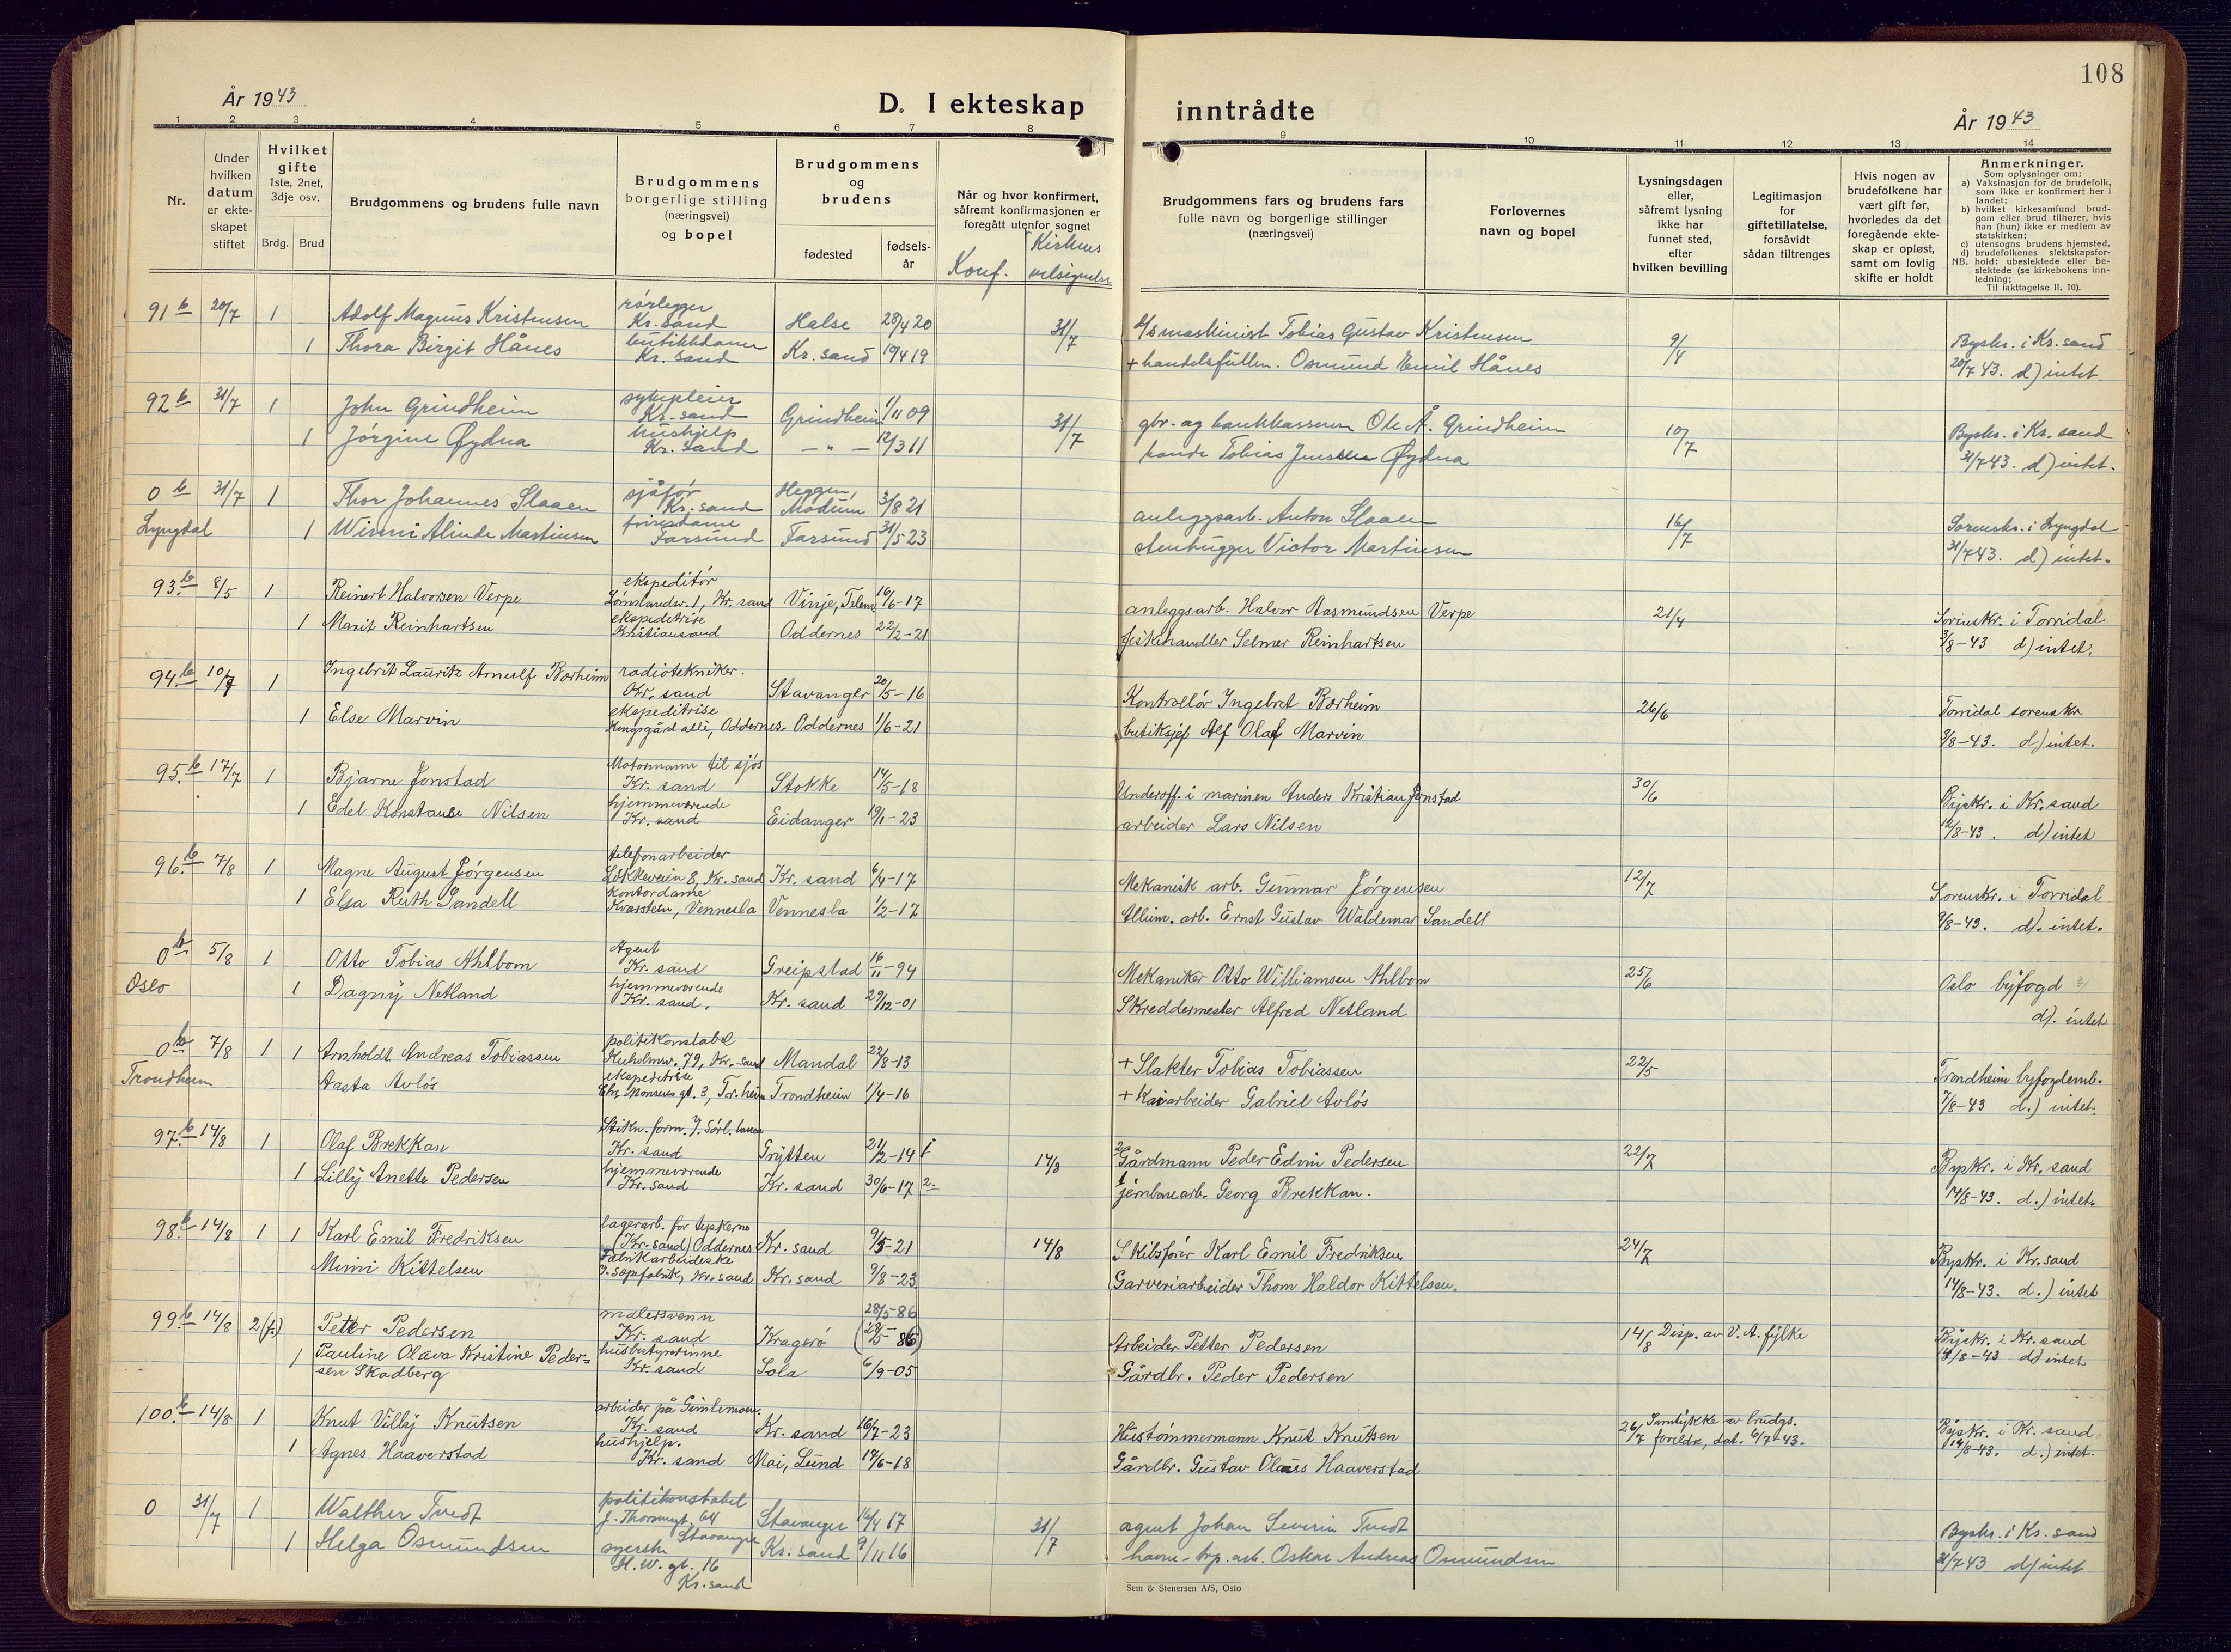 108
År 1943
D. I ekteskap inntrådte
År 1943
1 2 3 4 5 6 7 8 9 10 11 12 13 14
Nr.
Under hvilken datum er ekteskapet stiftet
Hvilket gifte 1ste, 2net, 3dje osv.
Brdg. Brud
Brudgommens og brudens fulle navn
Brudgommens borgerlige stilling (næringsvei) og bopel
Brudgommens og brudens
fødested
fødselsår
Når og hvor konfirmert, såfremt konfirmasjonen er foregått utenfor sognet
Konf. Kirkens velsignelse
Brudgommens fars og brudens fars fulle navn og borgerlige stillinger (næringsvei)
Forlovernes navn og bopel
Lysningsdagen eller, såfremt lysning ikke har funnet sted, efter hvilken bevilling
Legitimasjon for giftetillatelse, forsåvidt sådan tiltrenges
Hvis nogen av brudefolkene har vært gift før, hvorledes da det foregående ekteskap er opløst, samt om lovlig skifte er holdt
Anmerkninger.
Som oplysninger om:
a) Vaksinasjon for de brudefolk, som ikke er konfirmert her i landet;
b) hvilket kirkesamfund brudgom eller brud tilhører, hvis han (hun) ikke er medlem av statskirken;
c) utensogns brudens hjemsted.
d) brudefolkenes slektskapsforhold: ubeslektede eller beslektede (se kirkebokens Innledning;
NB.
Til iakttagelse II. 10).
91 b 20/7 1 Adolf Magnus Kristensen rørlegger Kr. sand Halse 28/4 20 31/7 maskinist Tobias Gustav Kristensen 9/4 Byskr. i Kr. sand
1 Thora Birgit Hånes butikkdame Kr. sand Kr. sand 19/4 19 + handelsfullm. Osmund Emil Hånes 20/7 43. d) intet
92 b 31/7 1 John Grindheim sykepleier Kr. sand Grindheim 1/11 09 31/7 gbr. og bankkasserer Ole Å. Grindheim 10/7 Byskr. i Kr. sand
1 Jørgine Øydna hushjelp Kr. sand — " — 12/3 11 bonde Tobias Jenssen Øydna 31/7 43. d) intet.
0 b 31/7 1 Thor Johannes Slaaen sjåfør Kr. sand Heggen, Modum 3/8 21 anleggsarb. Anton Slaaen 16/7 Sorenskr. i Lyngdal
Lyngdal 1 Winni Alinde Martinsen frisørdame Farsund Farsund 31/5 23 stenhugger Victor Martinsen 31/7 43. d) intet.
93. b 8/5 1 Reinert Halvorsen Verpe ekspeditør Lømslandsv. 1, Kr. sand Vinje, Telem. 16/6-17 anleggsarb. Halvor Aasmundsen Verpe 21/4 Sorenskr. i Torridal
1 Marit Reinhartsen ekspeditrise Kristiansand Oddernes 22/2-21 fiskehandler Selmer Reinhartsen 3/8-43 d) intet.
94. b 10/7 1 Ingebrit Lauritz Arnulf Bærheim radiotekniker. Kr. sand Stavanger 20/5-16 Kontrollør Ingebret Bærheim 26/6 Torridal sorenskr.
1 Else Marvin ekspeditrise Kongsgård alli, Oddernes Oddernes 1/6-21 butiksjef Alf Olaf Marvin 3/8-43. d.) intet.
95. b 17/7 1 Bjarne Jonstad Motormann til sjøs Kr. sand Stokke 14/5-18 Underoff. i marinen Anders Kristian Jonstad 30/6 Byskr. i Kr. sand
1 Edel Konstanse Nilsen hjemmeværende Kr. sand Eidanger 19/1-23 arbeider Lars Nilsen 12/8-43. d) intet
96. b 7/8 1 Magne August Jørgensen telefonarbeider Løkkeveien 8, Kr. sand Kr. sand 6/4-17 Mekanisk arb. Gunnar Jørgensen 12/7 Sorenskr. i Torridal
1 Elsa Ruth Sandell Kontordame Kvarstein, Vennesla Vennesla 1/2-17 Allum. arb. Ernst Gustav Waldemar Sandell 9/8-43. d). intet.
0 b 5/8 1 Otto Tobias Ahlbom Agent Kr. sand Greipstad 16/11-94 Mekaniker Otto Williamsen Ahlbom 25/6 Oslo byfogd
Oslo 1 Dagny Netland hjemmeværende Kr. sand. Kr. sand 29/12-01 Skreddermester Alfred Netland d). intet
0 b 7/8 1 1 Arnholdt Andreas Tobiassen politikonstabel Kuholmsv. 79, Kr. sand Mandal 22/8-13 + Slakter Tobias Tobiassen 22/5 Trondheim byfogdemb.
Trondheim Aasta Avløs ekspeditrise Chr. Monsens gt. 3, Tr. heim Trondheim 1/4-16 + Kaiarbeider Gabriel Avløs 7/8-43 d.) intet.
97. b 14/8 1 Olaf Brekkan Kr. sand Grytten 21/2-14 1 14/8 2 Gårdmann Peder Edvin Pedersen 22/7 Byskr. i Kr. sand
1 Lilly Anette Pedersen hjemmeværende Kr. sand Kr. sand 30/6-17 2. 1 jernbanearb. Georg Brekkan. 14/8-43. d.) intet.
98. b 14/8 1 1 Karl Emil Fredriksen lagerarb. for tyskerne (Kr. sand) Oddernes Kr. sand 9/5-21 14/8 Skibsfører Karl Emil Fredriksen 24/7 Byskr. i Kr. sand
Mimi Kittelsen Fabrikarbeiderske Kr. sand Kr. sand 9/8-23 Garveriarbeider Thom Haldor Kittelsen. 14/8-43. d.) intet
99. b 14/8 2 (f.) Petter Pedersen malersvenn Kr. sand Kragerø 28/5-86 Arbeider Petter Pedersen 14/8 Disp. av V. A. fylke Byskr. i Kr. sand
1 Pauline Olava Kristine Pedersen Skadberg husbestyrerinne Kr. sand Sola 6/9-05 Gårdbr. Peder Pedersen 14/8-43 d) intet.
100. b 14/8 1 Knut Villy Knutsen arbeider på Gimlemoen. Kr. sand Kr. sand 16/7-23 Hustømmermann Knut Knutsen 26/7 Samtykke av brudgs. foreldre, dat. 6/7-43. Byskr. i Kr. sand
1 Agnes Haaverstad hushjelp. Kr. sand Moi, Lund 17/6-18 Gårdbr. Gustav Olaus Haaverstad 14/8-43. d.) intet.
0 31/7 1 Walther Tvedt politikonstabel 64 Stavanger Stavanger 16/4 17 31/7 agent Johan Severin Tvedt Byskr. i Kr. sand
1 Helga Osmundsen syerske H. W. gt. 16 Kr. sand Kr. sand 9/11 16 havne- arb. Oskar Andreas Osmundsen 31/7 43 d) intet
Sem & Stenersen A/S, Oslo